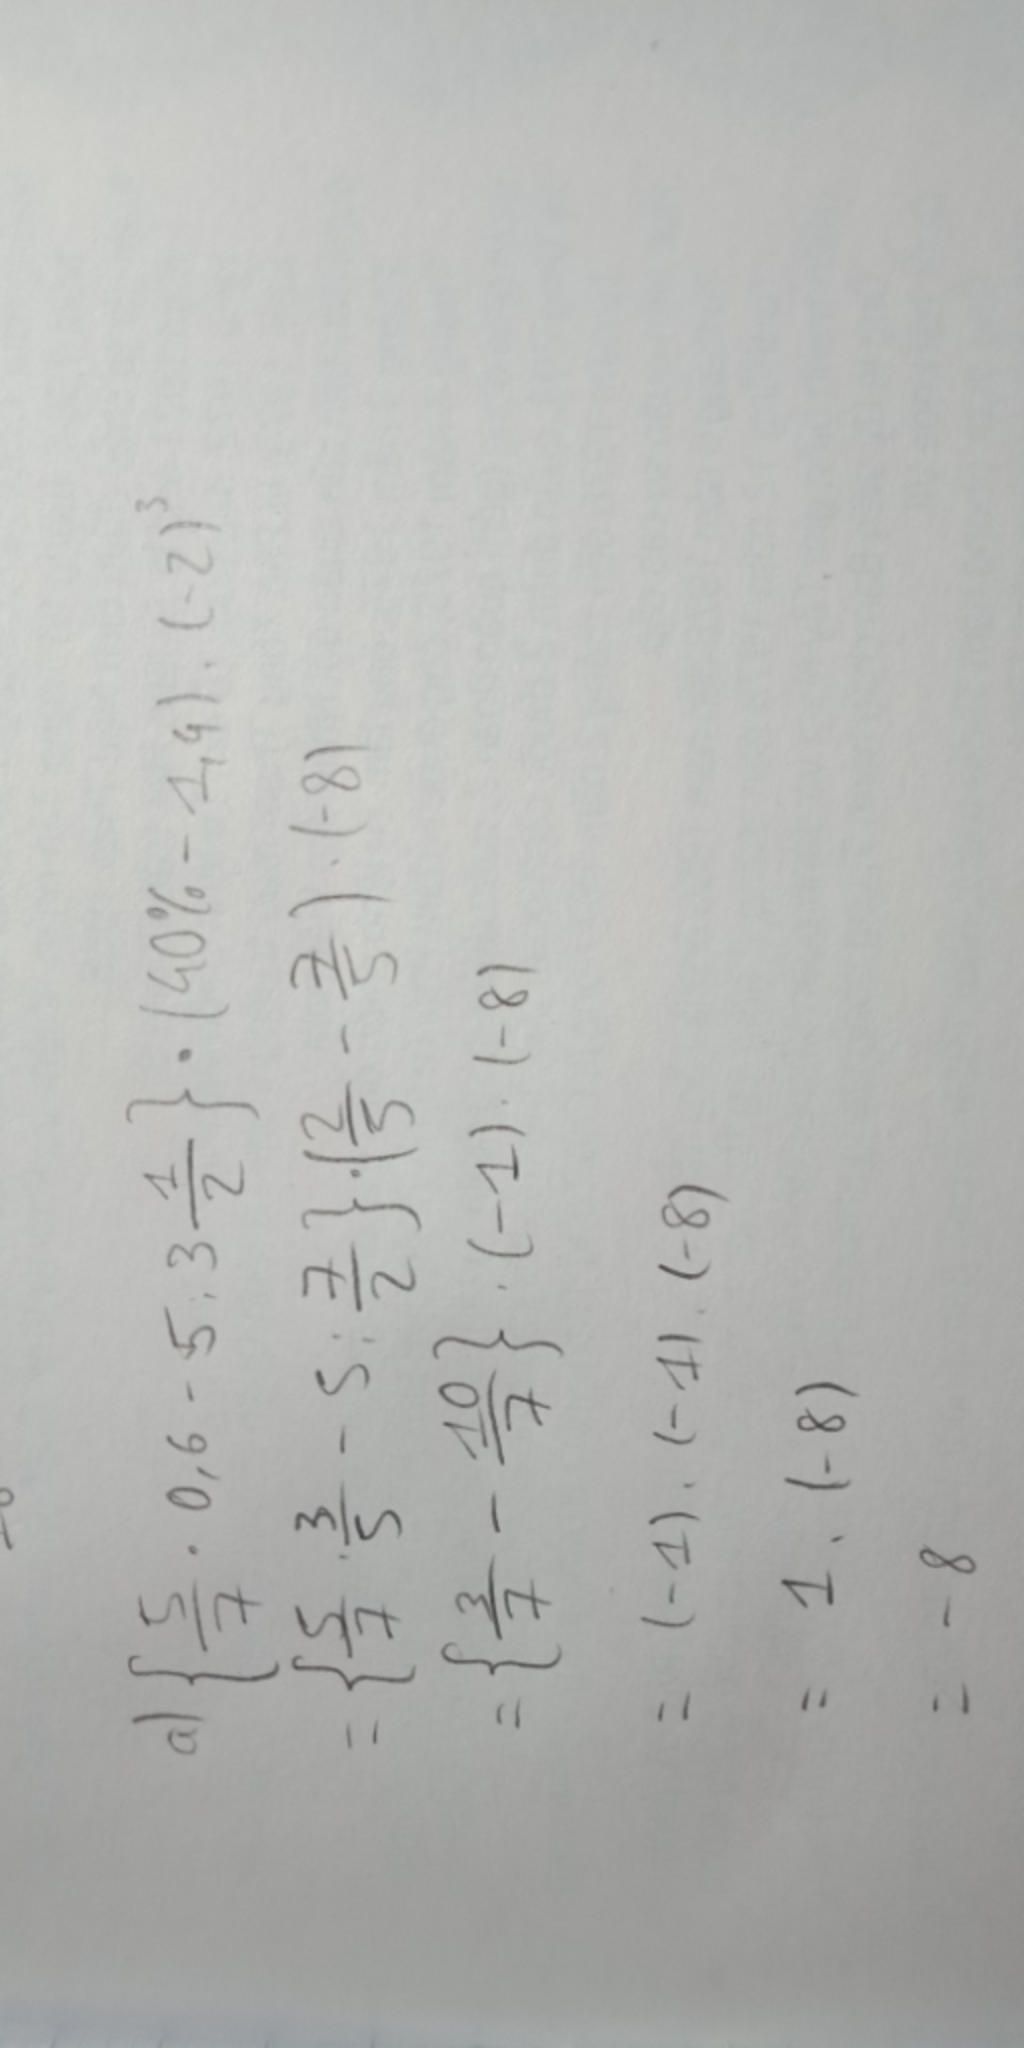 a) {5/7 . 0,6 - 5 : 3 1/2} . (40% - 1,4) . (-2)³
= {5/7 . 3/5 - 5 : 7/2} . (2/5 - 7/5) . (-8)
= {3/7 - 10/7} . (-1) . (-8)
= (-1) . (-1) . (-8)
= 1 . (-8)
= -8